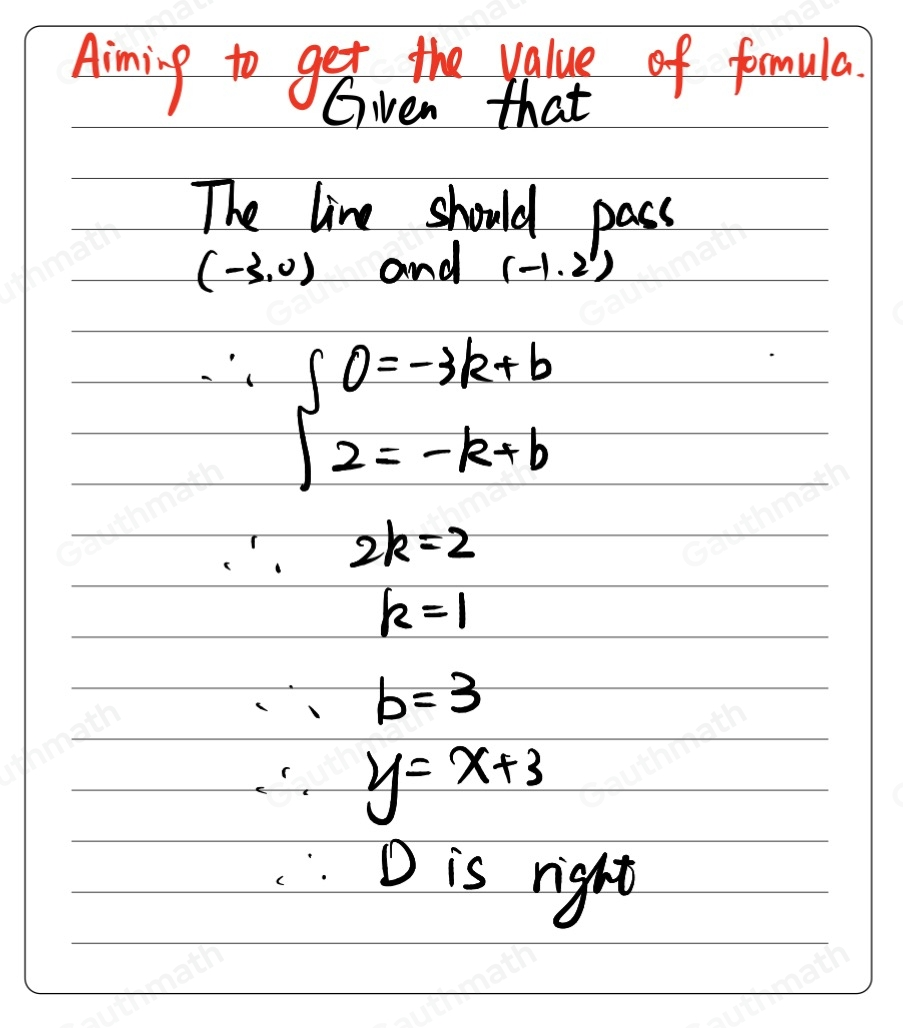 Aiming to get the value of formula.
Given that
The line should pass
(-3,0) and (-1.2)
∴ { 0=-3k+b
2=-k+b
∴ 2k=2
k=1
∴ b=3
∴ y=x+3
∴ D is right
Gauthmath